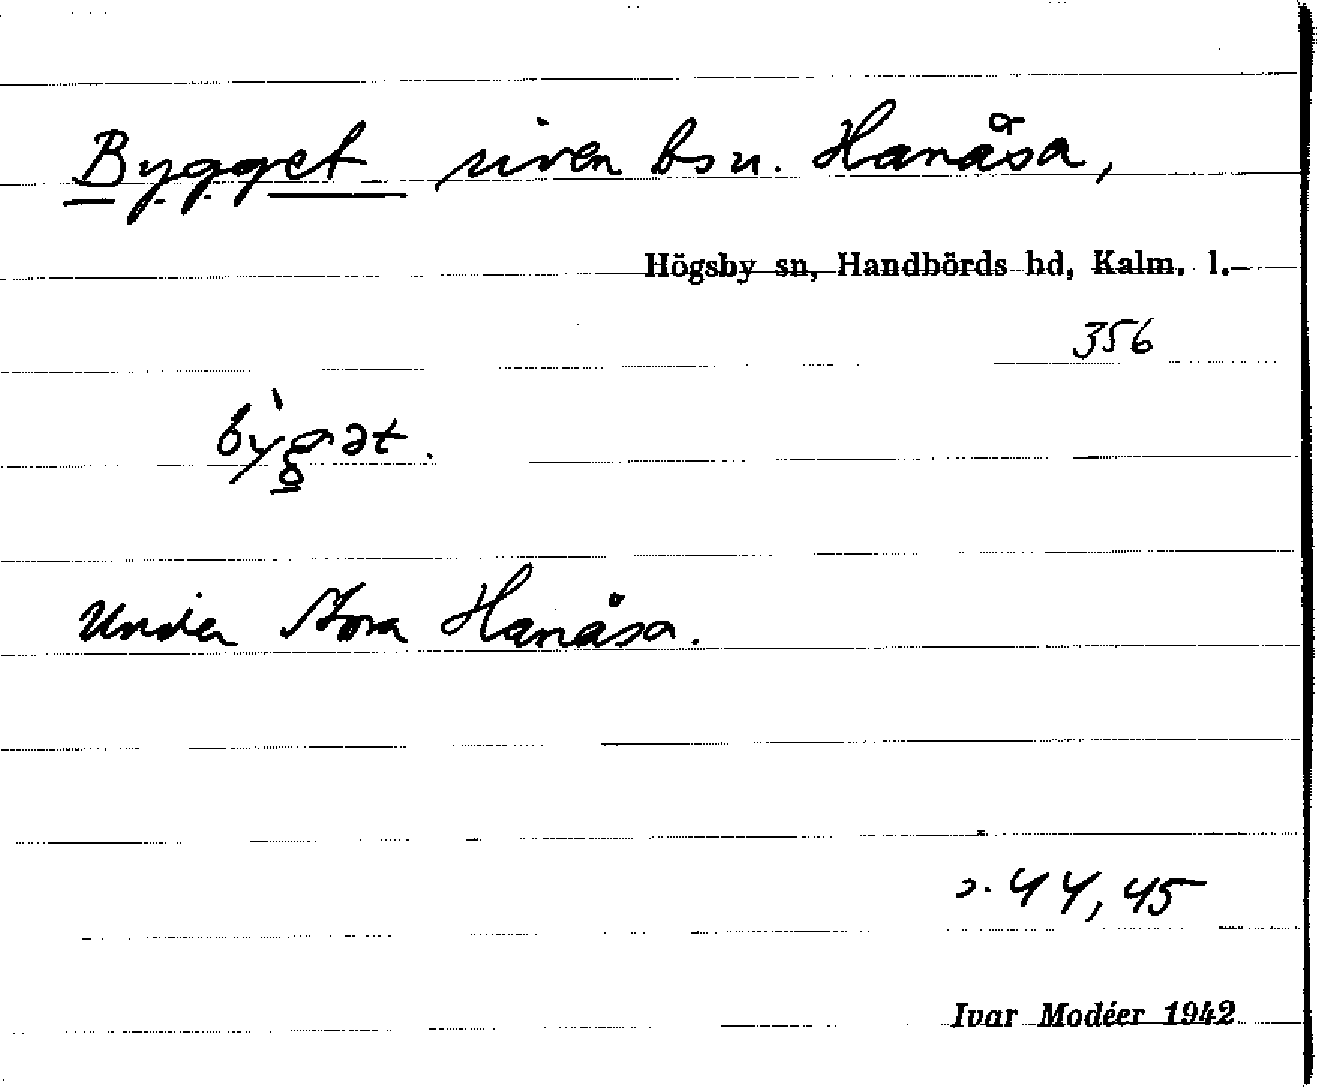 Bygget riven bsn. Hanåsa,
Högsby sn, Handbörds hd, Kalm. l.
356
bỳgət.
Under Stora Hanåsa.
s. 44, 45
Ivar Modéer 1942